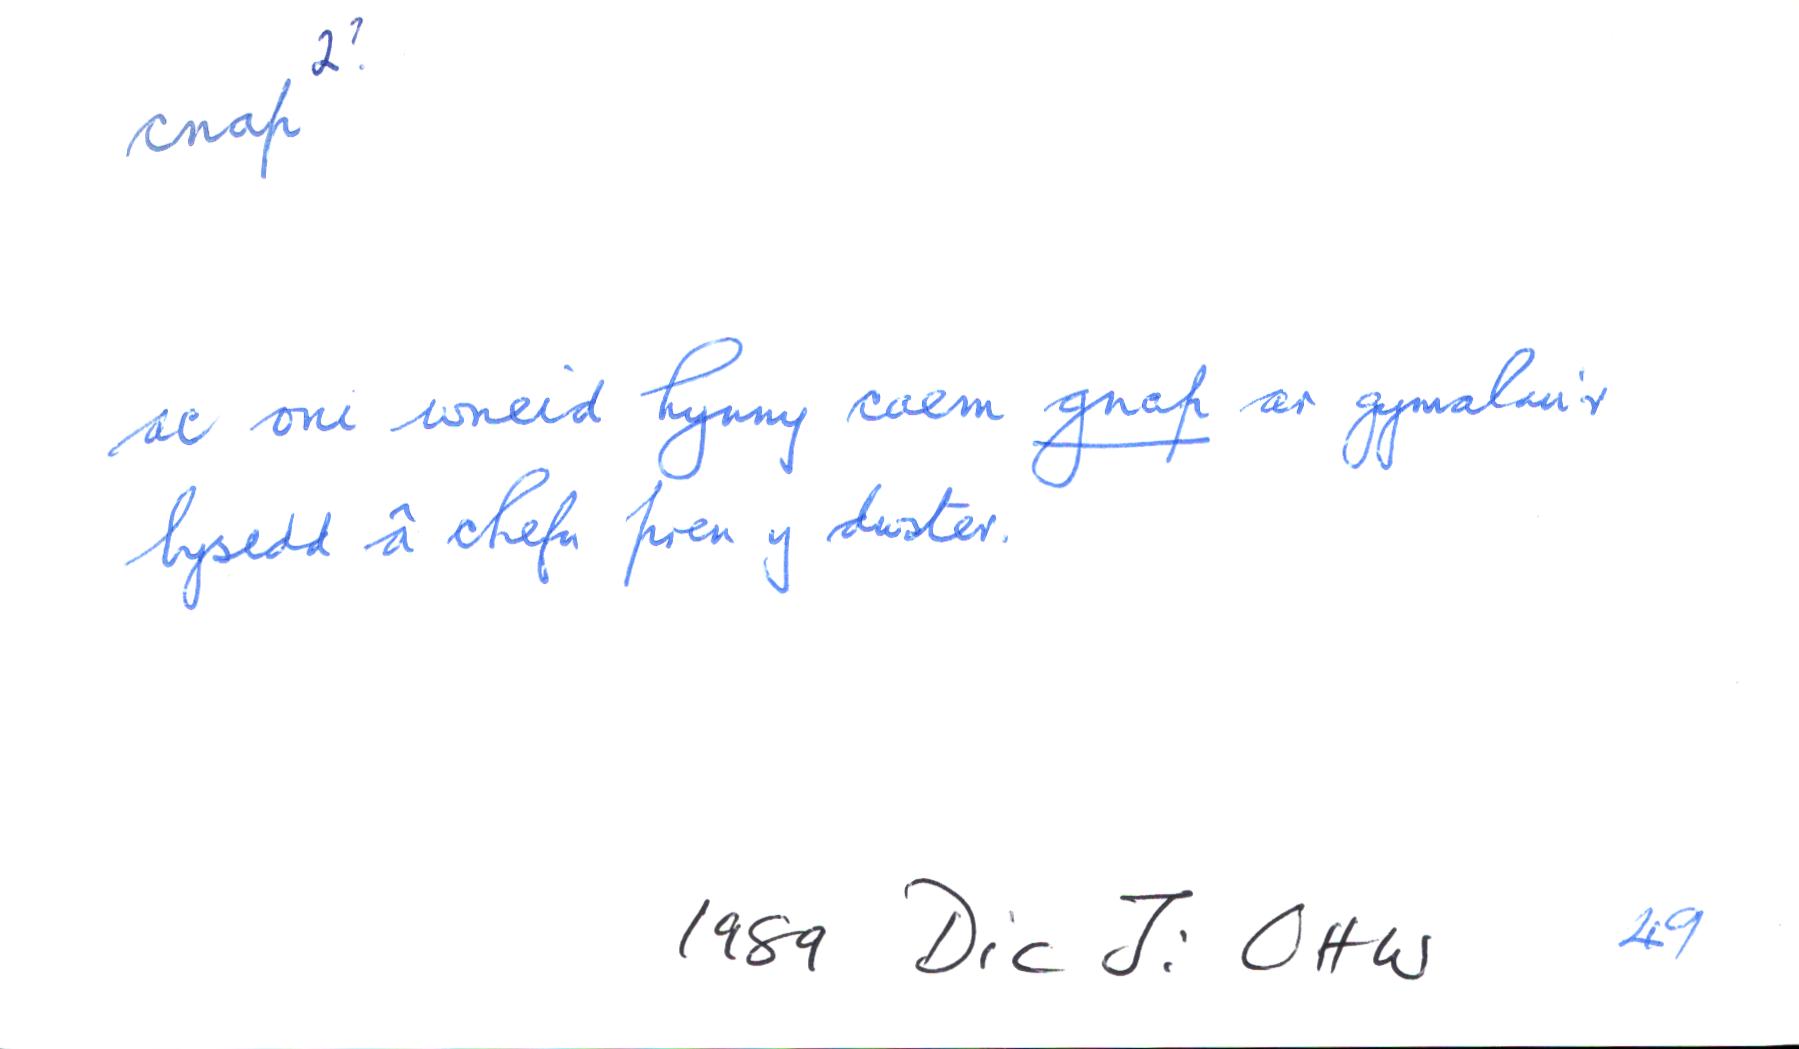 cnap 2?
ac oni wneid hynny caem gnap ar gymalau'r
bysedd â chefn pren y dwster.
1989 Dic J: OHW 49